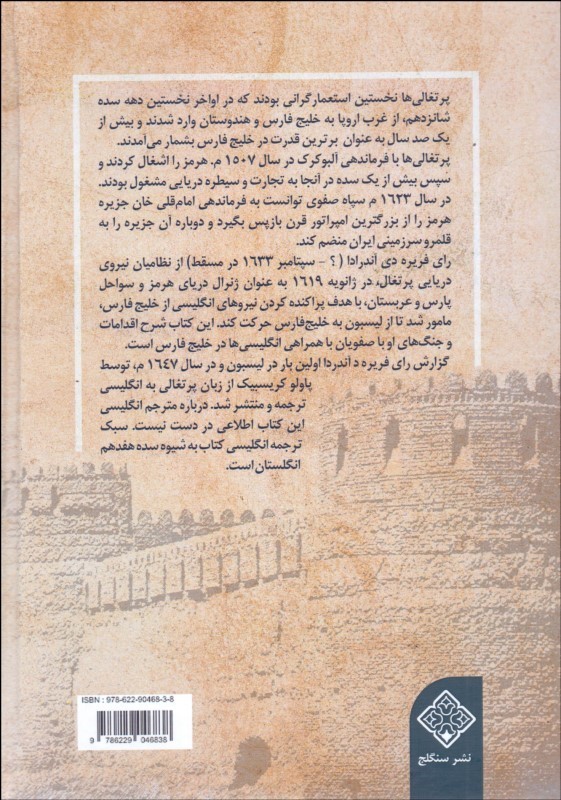 پرتغالی‌ها نخستین استعمارگرانی بودند که در اواخر نخستین دهه سده
شانزدهم، از غرب اروپا به خلیج فارس و هندوستان وارد شدند و بیش از
یک صد سال به عنوان برترین قدرت در خلیج فارس بشمار می‌آمدند.
پرتغالی‌ها با فرماندهی آلبوکرک در سال ۱۵۰۷ م. هرمز را اشغال کردند و
سپس بیش از یک سده در آنجا به تجارت و سیطره دریایی مشغول بودند.
در سال ۱۶۲۳ م سپاه صفوی توانست به فرماندهی امام‌قلی خان جزیره
هرمز را از بزرگترین امپراتور قرن بازپس بگیرد و دوباره آن جزیره را به
قلمرو سرزمینی ایران منضم کند.
رای فریره دی آندرادا ( ؟ – سپتامبر ۱۶۳۳ در مسقط) از نظامیان نیروی
دریایی پرتغال، در ژانویه ۱۶۱۹ به عنوان ژنرال دریای هرمز و سواحل
پارس و عربستان، با هدف پراکنده کردن نیروهای انگلیسی از خلیج فارس،
مامور شد تا از لیسبون به خلیج‌فارس حرکت کند. این کتاب شرح اقدامات
و جنگ‌های او با صفویان با همراهی انگلیسی‌ها در خلیج فارس است.
گزارش رای فریره د آندردا اولین بار در لیسبون و در سال ۱۶۴۷ م، توسط
پاولو کریسبیک از زبان پرتغالی به انگلیسی
ترجمه و منتشر شد. درباره مترجم انگلیسی
این کتاب اطلاعی در دست نیست. سبک
ترجمه انگلیسی کتاب به شیوه سده هفدهم
انگلستان است.
ISBN : 978-622-90468-3-8
9 786229 046838
نشر سنگلج